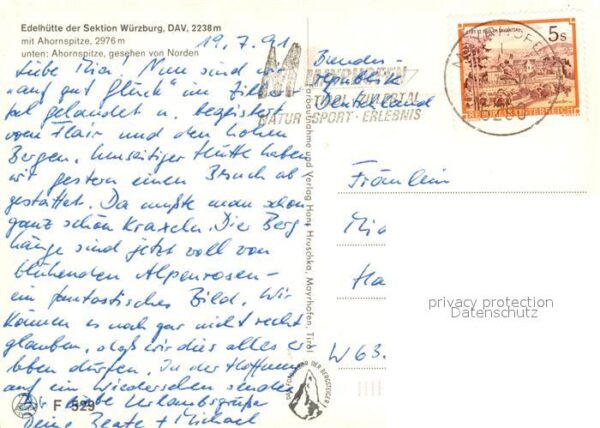 Edelhütte der Sektion Würzburg, DAV, 2238m
mit Ahornspitze, 2976m
unten: Ahornspitze, gesehen von Norden
19.7.91
Liebe Pia! Nun sind wir
"auf gut Glück" im Ziller-
tal gelandet u. begeistert
vom Flair und den hohen
Bergen. Umseitiger Hütte haben
wir gestern einen Besuch ab-
gestattet. Da mußte man schon
ganz schön kraxeln. Die Berg-
hänge sind jetzt voll von
blühenden Alpenrosen -
ein fantastisches Bild. Wir
können es noch gar nicht recht
glauben, daß wir dies alles er-
leben dürfen. In der Hoffnung
auf ein Wiedersehen senden
Dir liebe Urlaubsgrüße
Deine Beate + Michael
F 529
Farbaufnahme und Verlag Hans Hruschka, Mayrhofen, Tirol
Bundes-
republik
Deutschland
MAYRHOFEN
TIROL - ZILLERTAL
NATUR - SPORT - ERLEBNIS
5s
REPUBLIK ÖSTERREICH
6290
Fräulein
W 63.
privacy protection
Datenschutz
DER BERGSTEIGER